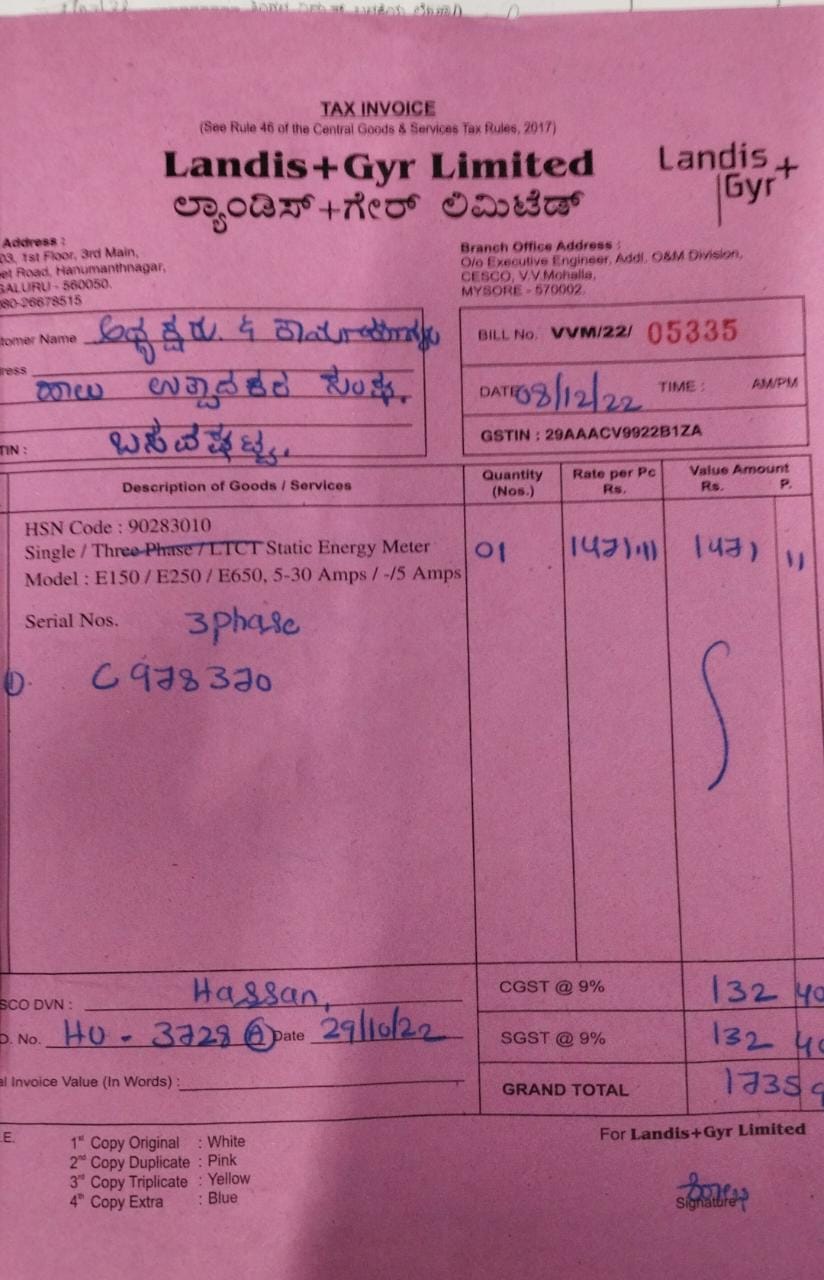 TAX INVOICE
(See Rule 46 of the Central Goods & Services Tax Rules, 2017)
Landis+Gyr Limited
ಲ್ಯಾಂಡಿಸ್+ಗೇರ್ ಲಿಮಿಟೆಡ್
Landis
Gyr+
Address :
03, 1st Floor, 3rd Main,
et Road, Hanumanthnagar,
GALURU - 560050.
080-26678515
Branch Office Address :
O/o Executive Engineer, Addl. O&M Division,
CESCO, V.V.Mohalla,
MYSORE - 570002.
tomer Name ಅಧ್ಯಕ್ಷರು
ress ಹಾಲು ಉತ್ಪಾದಕರ ಸಂಘ.
TIN :
BILL No. VVM/22/ 05335
DATE 08/12/22 TIME : AM/PM
GSTIN : 29AAACV9922B1ZA
Description of Goods / Services Quantity (Nos.) Rate per Pc Rs. Value Amount Rs. P.
HSN Code : 90283010
Single / Three Phase / LTCT Static Energy Meter 01 1471.11 1471 11
Model : E150 / E250 / E650, 5-30 Amps / -/5 Amps
Serial Nos. 3phase
1). C978370
SCO DVN : Hassan,
CGST @ 9% 132 40
O. No. HU - 3728 A Date 29/10/22
SGST @ 9% 132 40
al Invoice Value (In Words) :
GRAND TOTAL 1735 9
E.
1st Copy Original : White
2nd Copy Duplicate : Pink
3rd Copy Triplicate : Yellow
4th Copy Extra : Blue
For Landis+Gyr Limited
Signature